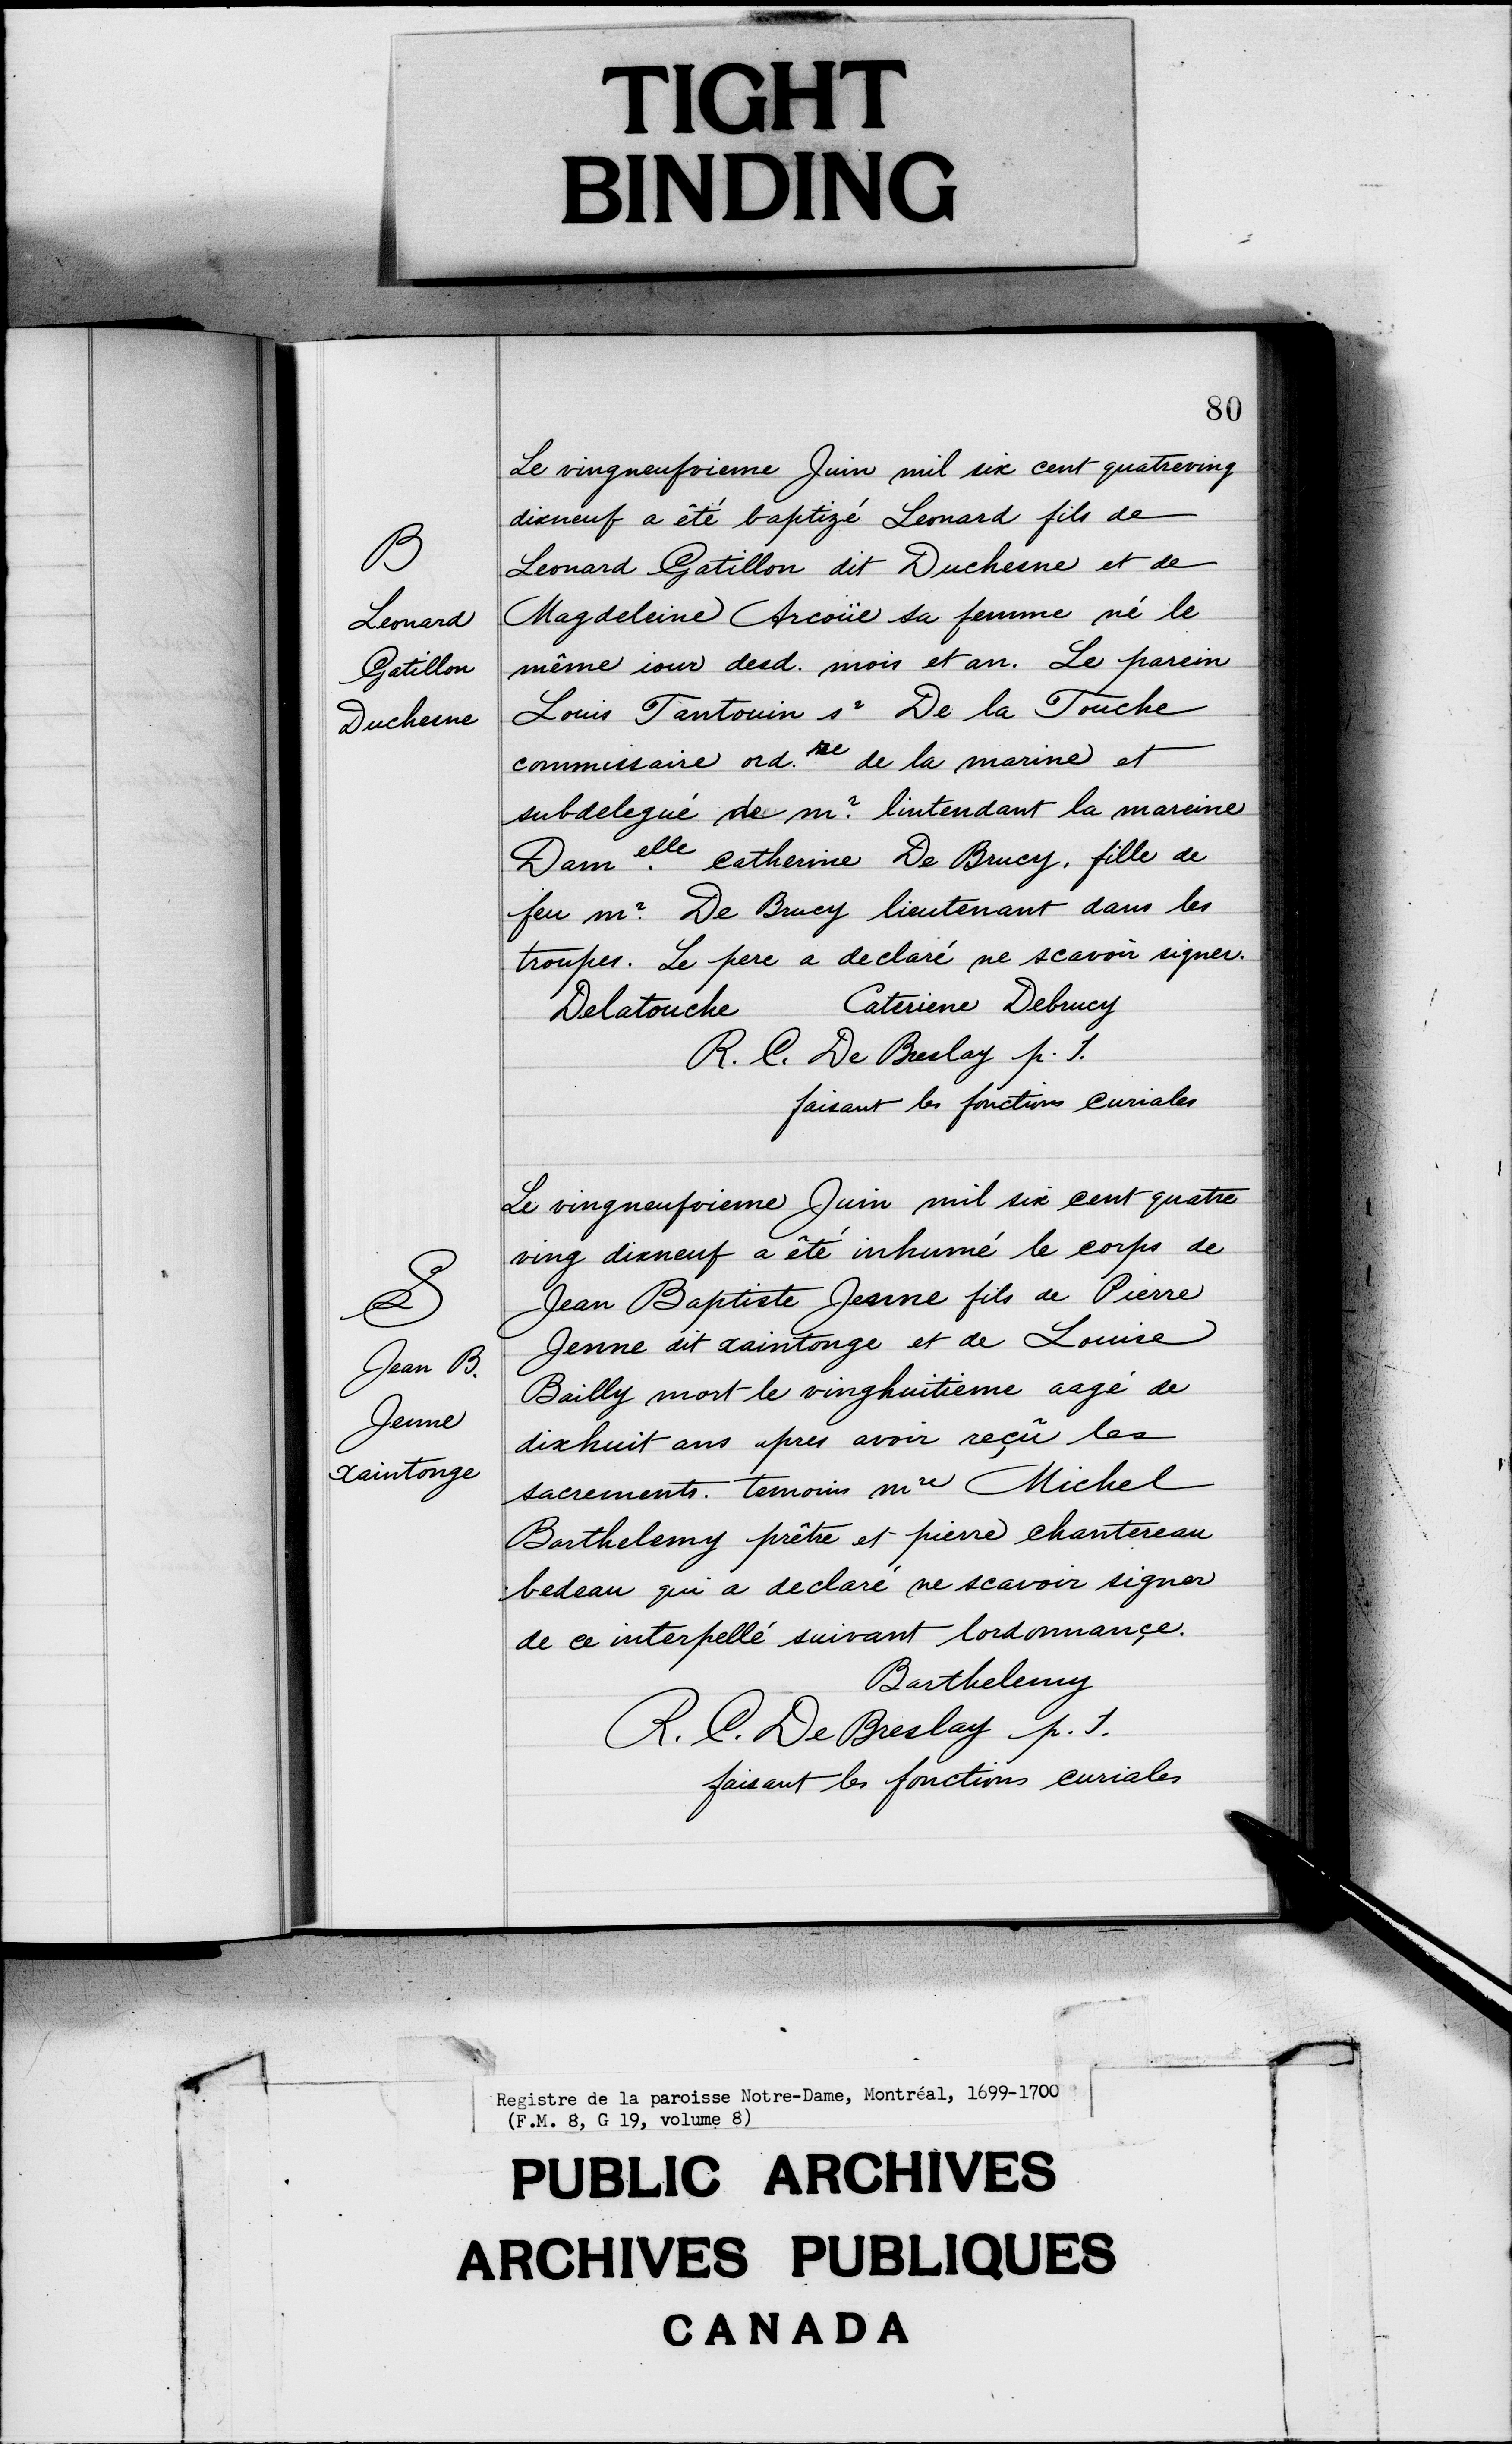 TIGHT
BINDING
80
Le vingneufvieme Juin mil six cent quatreving
dixneuf a été baptizé Leonard fils de
B
Leonard Gatillon dit Duchesne et de
Leonard
Magdeleine Arcoüe sa femme né le
Gatillon
même iour desd. mois et an. Le parein
Duchesne
Louis Tantouin sr De la Touche
commissaire ord.re de la marine et
subdelegué de mr. lintendant la mareine
Dam.elle catherine De Brucy, fille de
feu mr. De Brucy lieutenant dans les
troupes. Le pere a declaré ne scavoir signer.
Delatouche Cateriene Debrucy
R. C. De Breslay p. J.
faisant les fonctions curiales
Le vingneufvieme Juin mil six cent quatre
ving dixneuf a été inhumé le corps de
S
Jean Baptiste Jenne fils de Pierre
Jenne dit xaintonge et de Louise
Jean B.
Bailly mort le vinghuitieme aagé de
Jenne
dixhuit ans apres avoir reçû les
xaintonge
sacrements. temoins mre Michel
Barthelemy prêtre et pierre chantereau
bedeau qui a declaré ne scavoir signer
de ce interpellé suivant lordonnançe.
Barthelemy
R. C. De Breslay p. J.
faisant les fonctions curiales
Registre de la paroisse Notre-Dame, Montréal, 1699-1700
(F.M. 8, G 19, volume 8)
PUBLIC ARCHIVES
ARCHIVES PUBLIQUES
CANADA